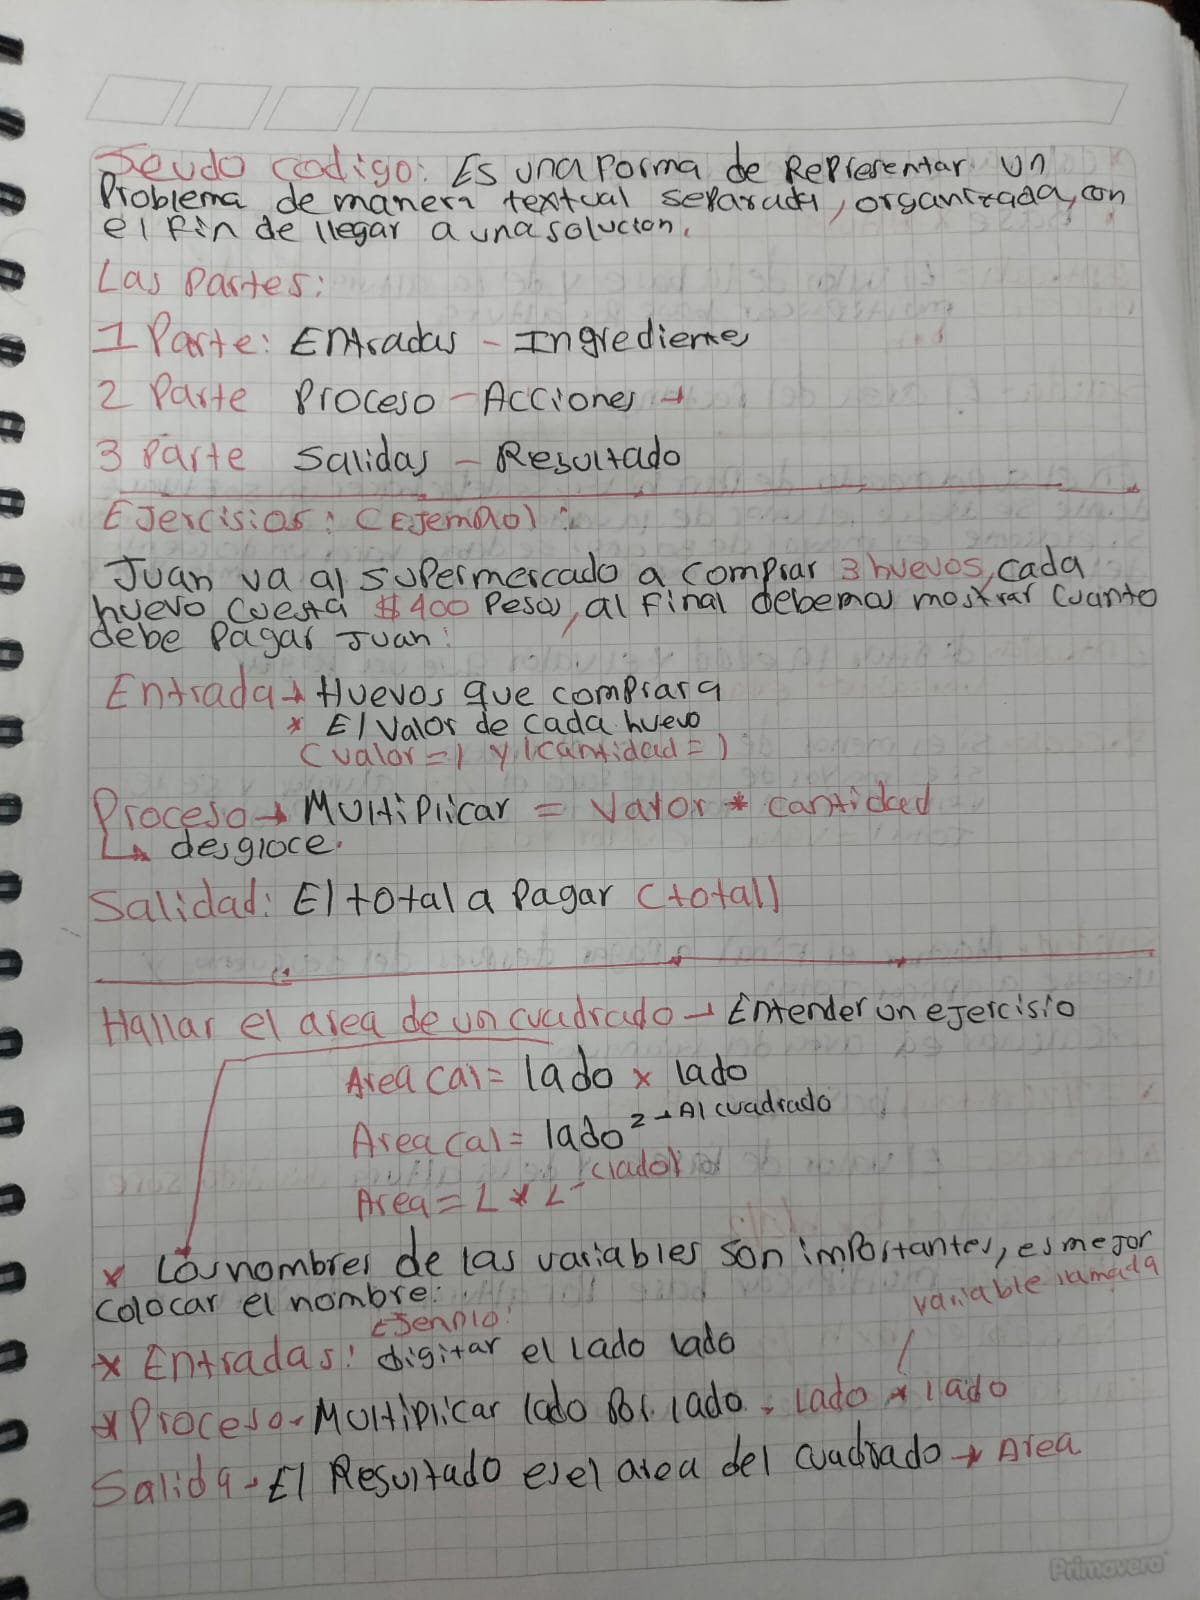 Seudo codigo: Es una forma de Representar un
Problema de manera textual separada, organizada, con
el fin de llegar a una solucion.
Las Partes:
1 Parte: Entradas - Ingrediente
2 Parte Proceso - Acciones →
3 Parte Salidas - Resultado
Ejercisios: (Ejemplo):
Juan va al supermercado a comprar 3 huevos, cada
huevo cuesta $400 Pesos, al final debemos mostrar cuanto
debe Pagar Juan:
Entrada → Huevos que comprara
* El Valor de cada huevo
(valor=) y (cantidad=)
Proceso → Multiplicar = Valor * cantidad
↳ desgloce.
Salidad: El total a Pagar (total)
Hallar el area de un cuadrado → Entender un ejercisio
Area Cal = lado x lado
Area Cal = lado² → Al cuadrado
Area = L * L - (lado)
* Los nombres de las variables son importantes, es mejor
colocar el nombre:
variable llamada
Ejenplo:
* Entradas: digitar el lado lado
* Proceso - Multiplicar lado por lado. lado * lado
Salida - El Resultado es el area del cuadrado → Area
Primavera